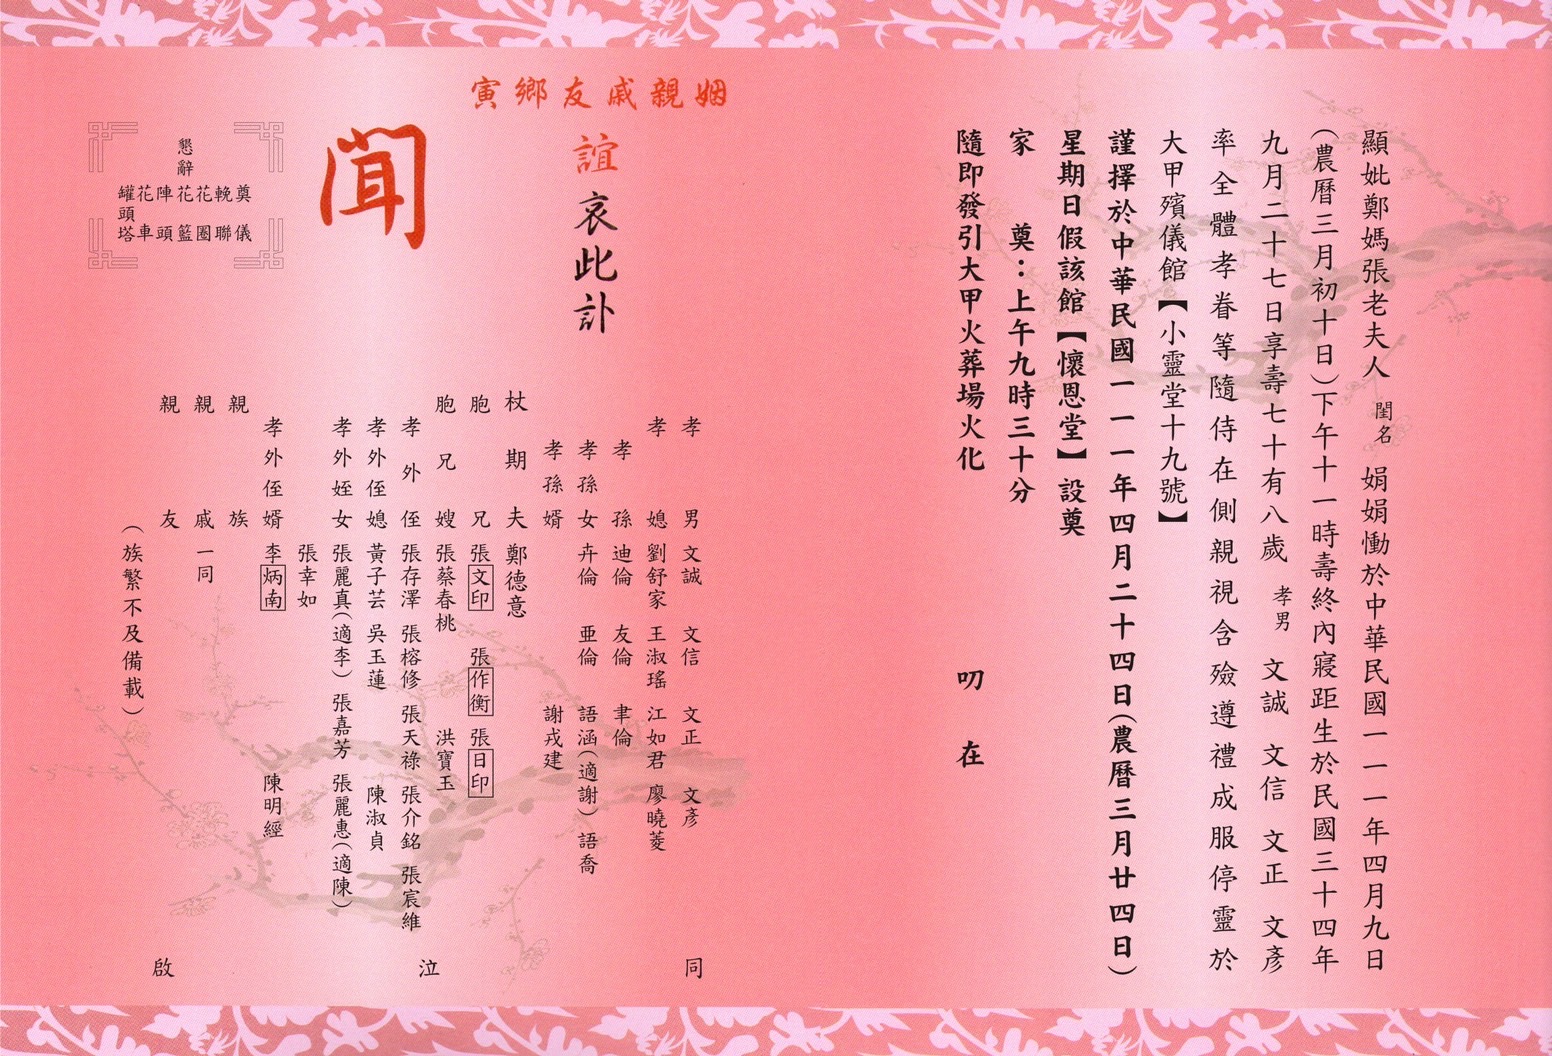 顯妣鄭媽張老夫人 閨名 娟娟慟於中華民國一一一年四月九日
(農曆三月初十日)下午十一時壽終內寢距生於民國三十四年
九月二十七日享壽七十有八歲 孝男 文誠 文信 文正 文彥
率全體孝眷等隨侍在側親視含殮遵禮成服停靈於
大甲殯儀館【小靈堂十九號】
謹擇於中華民國一一一年四月二十四日(農曆三月廿四日)
星期日假該館【懷恩堂】設奠
家 奠:上午九時三十分
隨即發引大甲火葬場火化 叨 在
姻親戚友鄉寅
誼哀此訃
聞
孝男 文誠 文信 文正 文彥
孝媳 劉舒家 王淑瑤 江如君 廖曉菱
孝孫 迪倫 友倫 聿倫
孝孫女 卉倫 亜倫 語涵(適謝) 語喬
孝孫婿 謝戎建
杖期夫 鄭德意
胞兄 張文印 張作衡 張日印
胞兄嫂 張蔡春桃 洪寶玉
孝外侄 張存澤 張榕修 張天祿 張介銘 張宸維
孝外侄媳 黃子芸 吳玉蓮 陳淑貞
孝外姪女 張麗真(適李) 張嘉芳 張麗惠(適陳)
張幸如
孝外侄婿 李炳南 陳明經
親族
親戚一同
親友
(族繁不及備載)
同泣啟
懇辭
奠儀
輓聯
花圈
花籃
陣頭
花車
罐頭塔